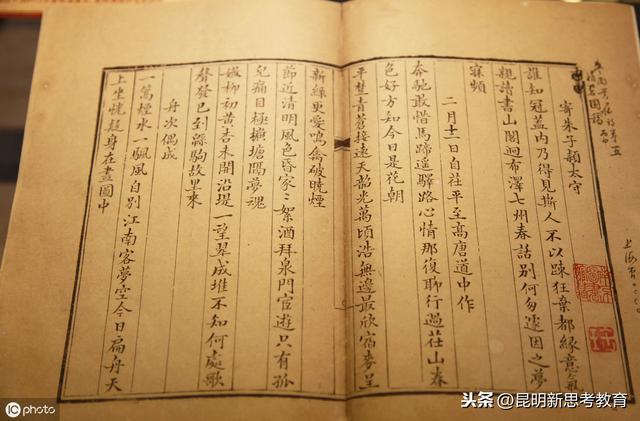 寄朱子頴太守
誰知冠蓋内乃得見斯人不以踈狂棄都緣意氣
親讀書山閣迥布澤七州春話別何匆遽因之夢
寐頻
二月十二日自茌平至高唐道中作
奔馳敢惜馬蹄遥驛路心情那復聊行過茌山春
色好方知今日是花朝
平楚青蒼接遠天韶光萬頃浩無邊最欣宿麥呈
新綠更愛鳴禽破曉煙
節近清明風色昏家〻絮酒拜泉門官遊只有孤
兒痛目極橫塘隔夢魂
嫩柳初黃杏未開沿堤一望翠成堆不知何處歌
聲發已到綿駒故里來
舟次偶成
一篙煙水一颿風自別江南客夢空今日扁舟天
上坐恍疑身在畫圖中
iC photo
头条 @昆明新思考教育